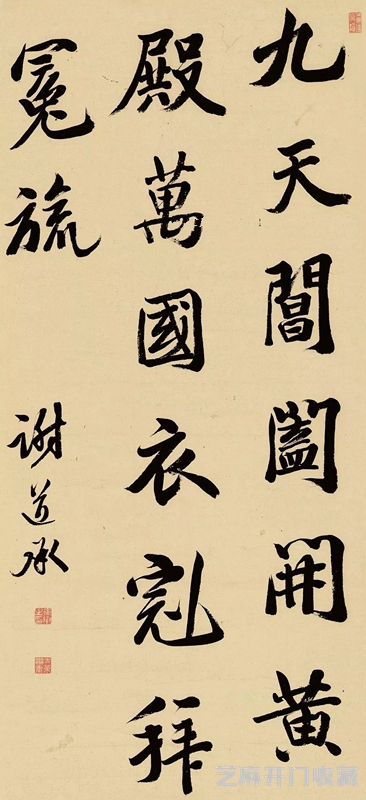 九天閶闔開黃
殿萬國衣冠拜
冕旒
謝道承
芝麻开门收藏